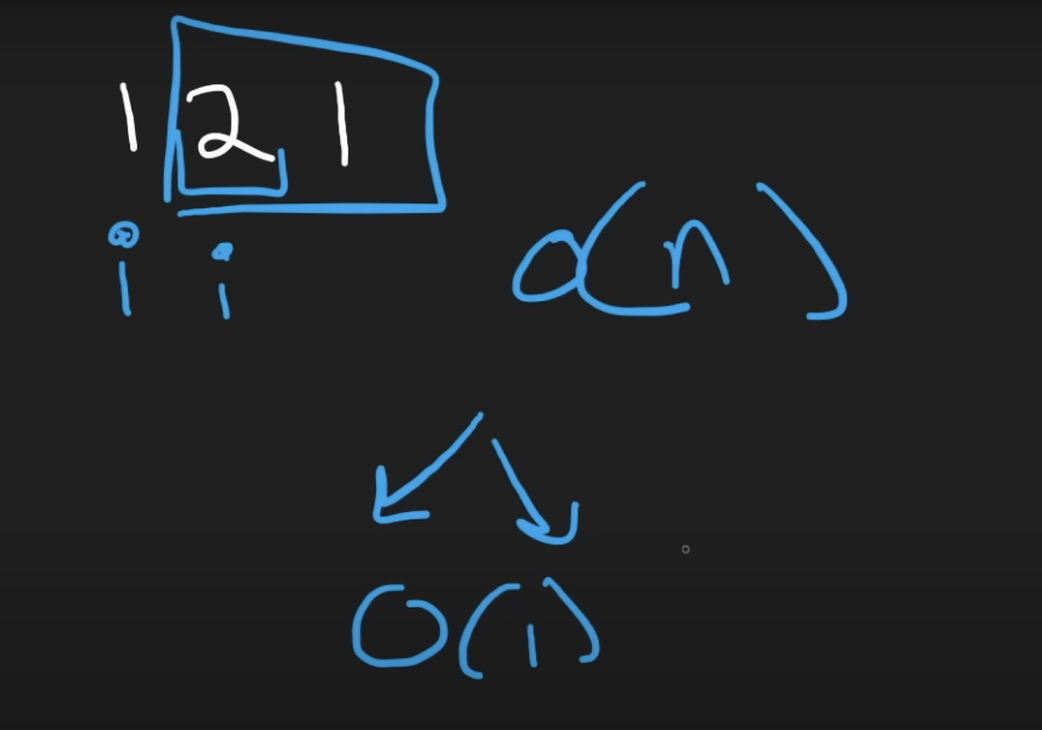 1 2 1
i i
O(n)
O(1)